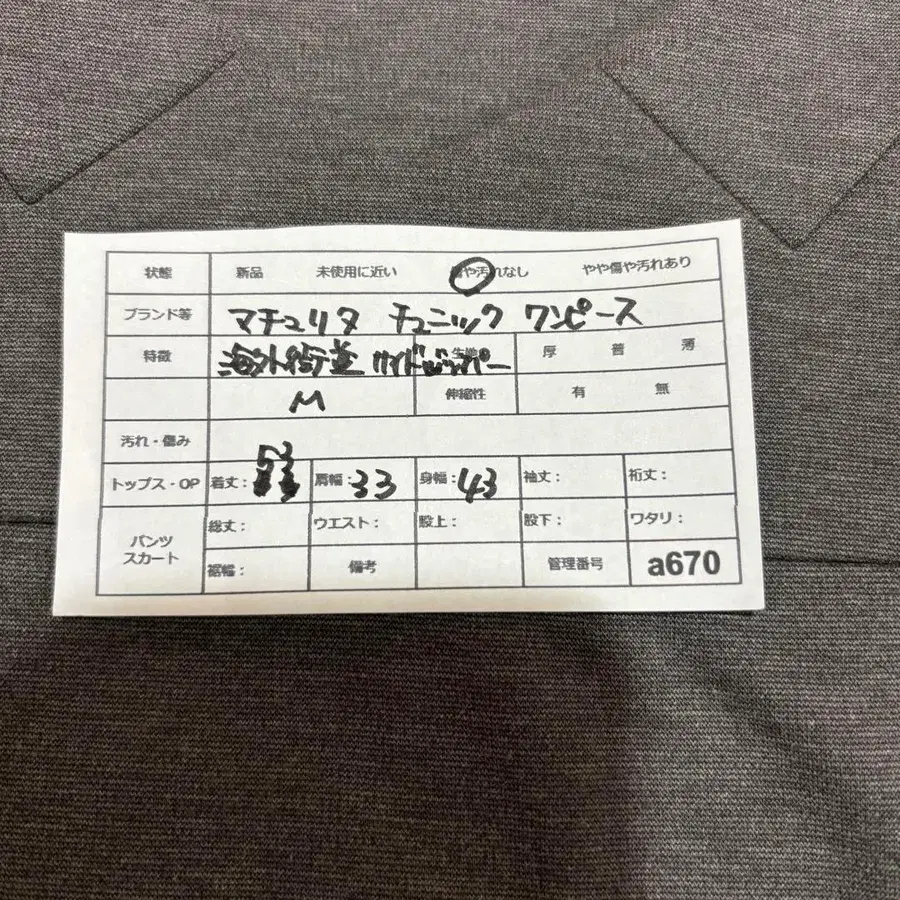 状態 新品 未使用に近い 傷や汚れなし やや傷や汚れあり
ブランド等 マチュリタ チュニック ワンピース
特徴 海外 サイドジッパー 生地 厚 普 薄
M 伸縮性 有 無
汚れ・傷み
53
トップス・OP 着丈: 肩幅:33 身幅:43 袖丈: 裄丈:
パンツ スカート 総丈: ウエスト: 股上: 股下: ワタリ:
裾幅: 備考 管理番号 a670